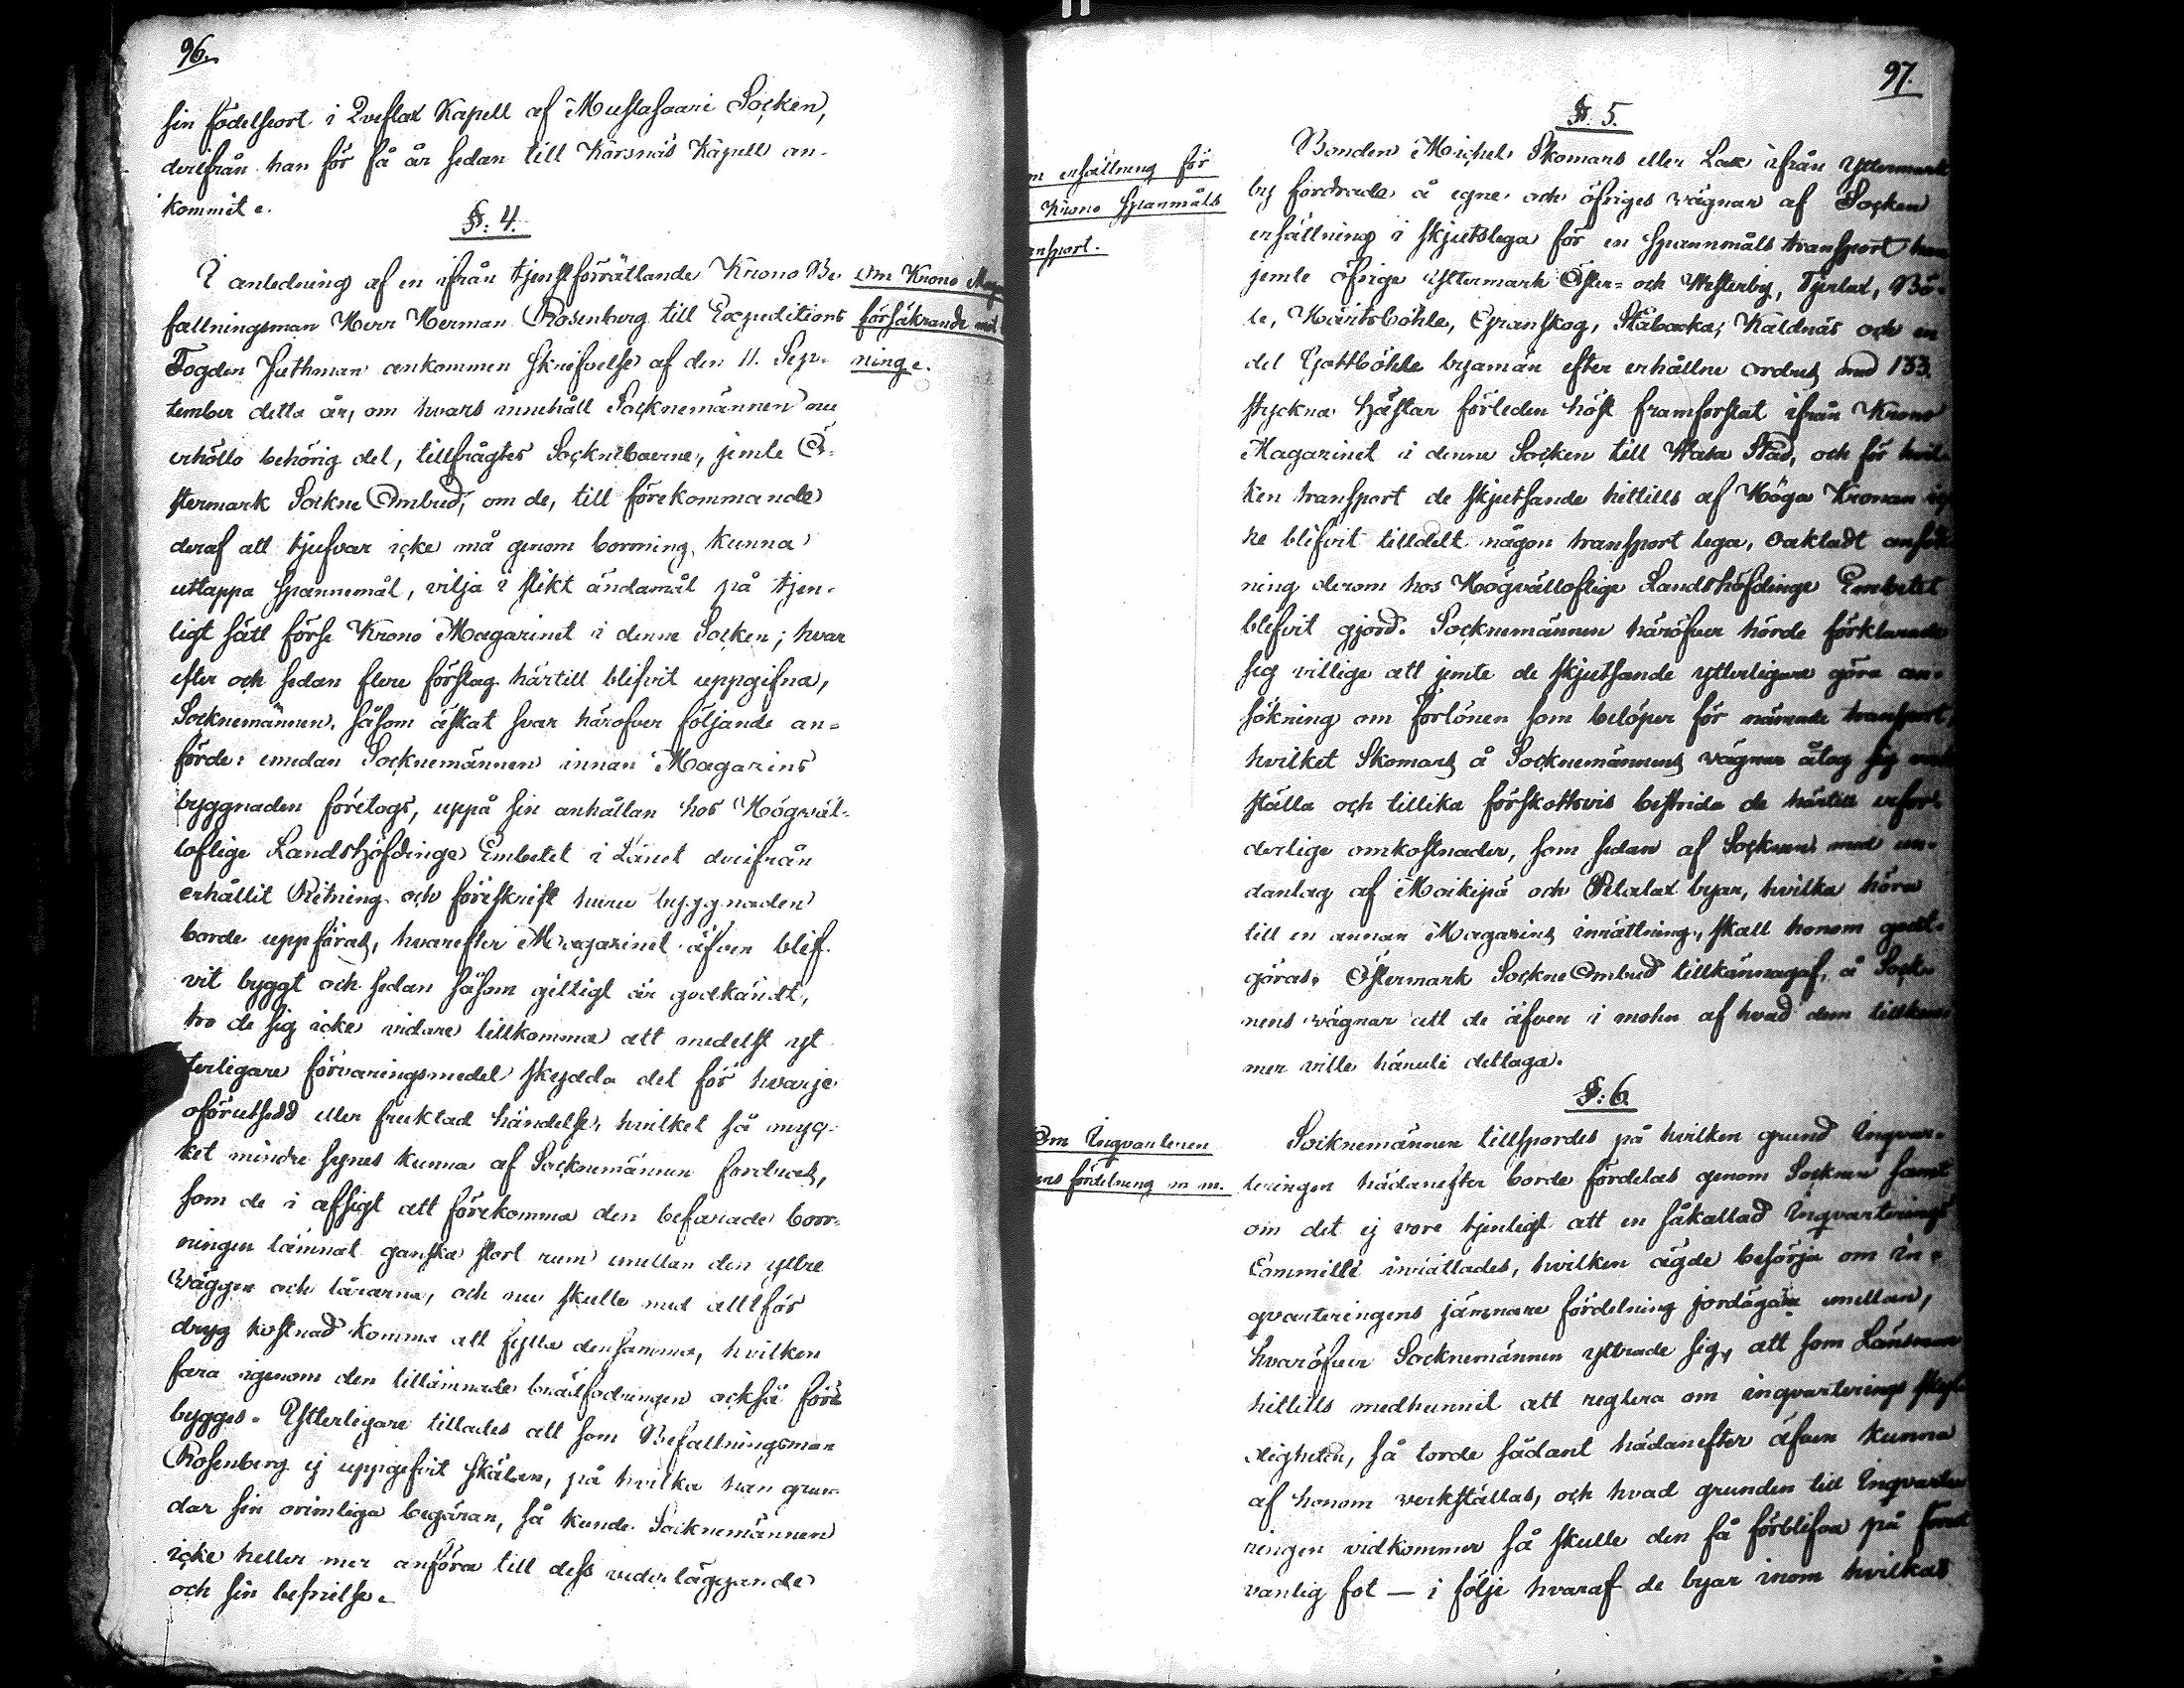 96.
sin födelseort i Qveflax Kapell af Mustasaari Socken,
derifrån han för få år sedan till Korsnäs Kapell an-
kommit.
§: 4.
I anledning af en ifrån tjenstförrättande Krono Be-
fallningsman Herr Herman Rosenberg till Expeditions
Fogden Juthman ankommen skrifvelse af den 11. Sep-
tember detta år, om hvars innehåll Socknemännen nu
erhöllo behörig del, tillfrågtes Sockneboerne, jemte Ö-
stermark Sockne Ombud, om de, till förekommande
deraf att tjufvar icke må genom borrning kunna
uttappa spannemål, vilja i slikt ändamål på tjen-
ligt sätt förse Krono Magazinet i denne Socken; hvar
efter och sedan flere förslag härtill blifvit uppgifna,
Socknemännen, såsom äskat svar häröfver följande an-
förde: emedan Socknemännen innan Magazins
byggnaden företogs, uppå sin anhållan hos Högväl-
loflige Landshöfdinge Embetet i Länet derifrån
erhållit Ritning och föreskrift huru byggnaden
borde uppföras, hvarefter Magazinet äfven blif-
vit byggt och sedan såsom giltigt är godkändt,
tro de sig icke vidare tillkomma att medelst yt
terligare förvaringsmedel skydda det för hvarje
oförutsedd eller fruktad händelse, hvilket så myc-
ket mindre synes kunna af Socknemännen fordras,
som de i afsigt att förekomma den befarade borr-
ningen lämnat ganska stort rum emellan den yttre
Väggen och lårarna, och nu skulle med alltför
dryg kostnad komma att fylla densamma, hvilken
fara igenom den tillämnade brädfodringen också före
bygges. Ytterligare tillades att som Befallningsman
Rosenberg ej uppgifvit skälen, på hvilka han grun-
dar sin orimliga begäran, så kunde Socknemännen
icke heller mer anföra till dess vederläggande
och sin befrielse.
Om Krono Mag
försäkrande mot
ning.
97.
§. 5.
Bonden Michel Skomars eller Lax ifrån Yttermark
by fordrade å egne och öfriges vägnar af Socken
ersättning i skjutslega för en spannmåls transport
jemte öfrige Yttermark Öster- och Westerby, Tjerlax, Bö-
le, Håritsböhle, Granskog, Ståbacka, Kaldnäs och en
del Gottböhle byamän efter erhållne ordres med 133.
stycken hästar förleden höst framforslat ifrån Krono
Magazinet i denne Socken till Wasa Stad, och för hvil-
ken transport de skjutsande hittills af Höga Kronan
ke blifvit tilldelt någon transport lega, oaktadt ansök
ning derom hos Högvälloflige Landshöfdinge Embetet
blifvit gjord. Socknemännen häröfver hörde förklarade
sig villige att jemte de skjutsande ytterligare göra an-
sökning om forlönen som belöper för nämnde transport,
hvilket Skomars å Socknemännens vägnar åtog sig
ställa och tillika förskottsvis bestrida de härtill erfor-
derlige omkostnader, som sedan af Socknen med un-
dantag af Moikipä och Petalax byar, hvilka höra
till en annan Magazins inrättning, skall honom godt-
göras. Östermark Sockne Ombud tillkännagaf, å Sock-
nens vägnar att de äfven i mohn af hvad dem tillkom
mer ville häruti deltaga.
m ersättning för
Krono Spanmåls
nsport.
§: 6.
Socknemännen tillspordes på hvilken grund Inqvar-
teringen hädanefter borde fördelas genom Socknen samt
om det ej vore tjenligt att en såkallad Inqvarterings
Committé inrättades, hvilken ägde besörja om in-
qvarteringens jämnare fördelning jordägare emellan,
hvaröfver Socknemännen yttrade sig, att som Länsman
hittills medhunnit att reglera om inqvarterings skyl
digheten, så torde sådant hädanefter äfven kunna
af honom verkställas, och hvad grunden till Inqvarte
ringen vidkommer så skulle den få förblifva på förut
vanlig fot — i följe hvaraf de byar inom hvilkas
Om Inqvarterin
ens fördelning m m.